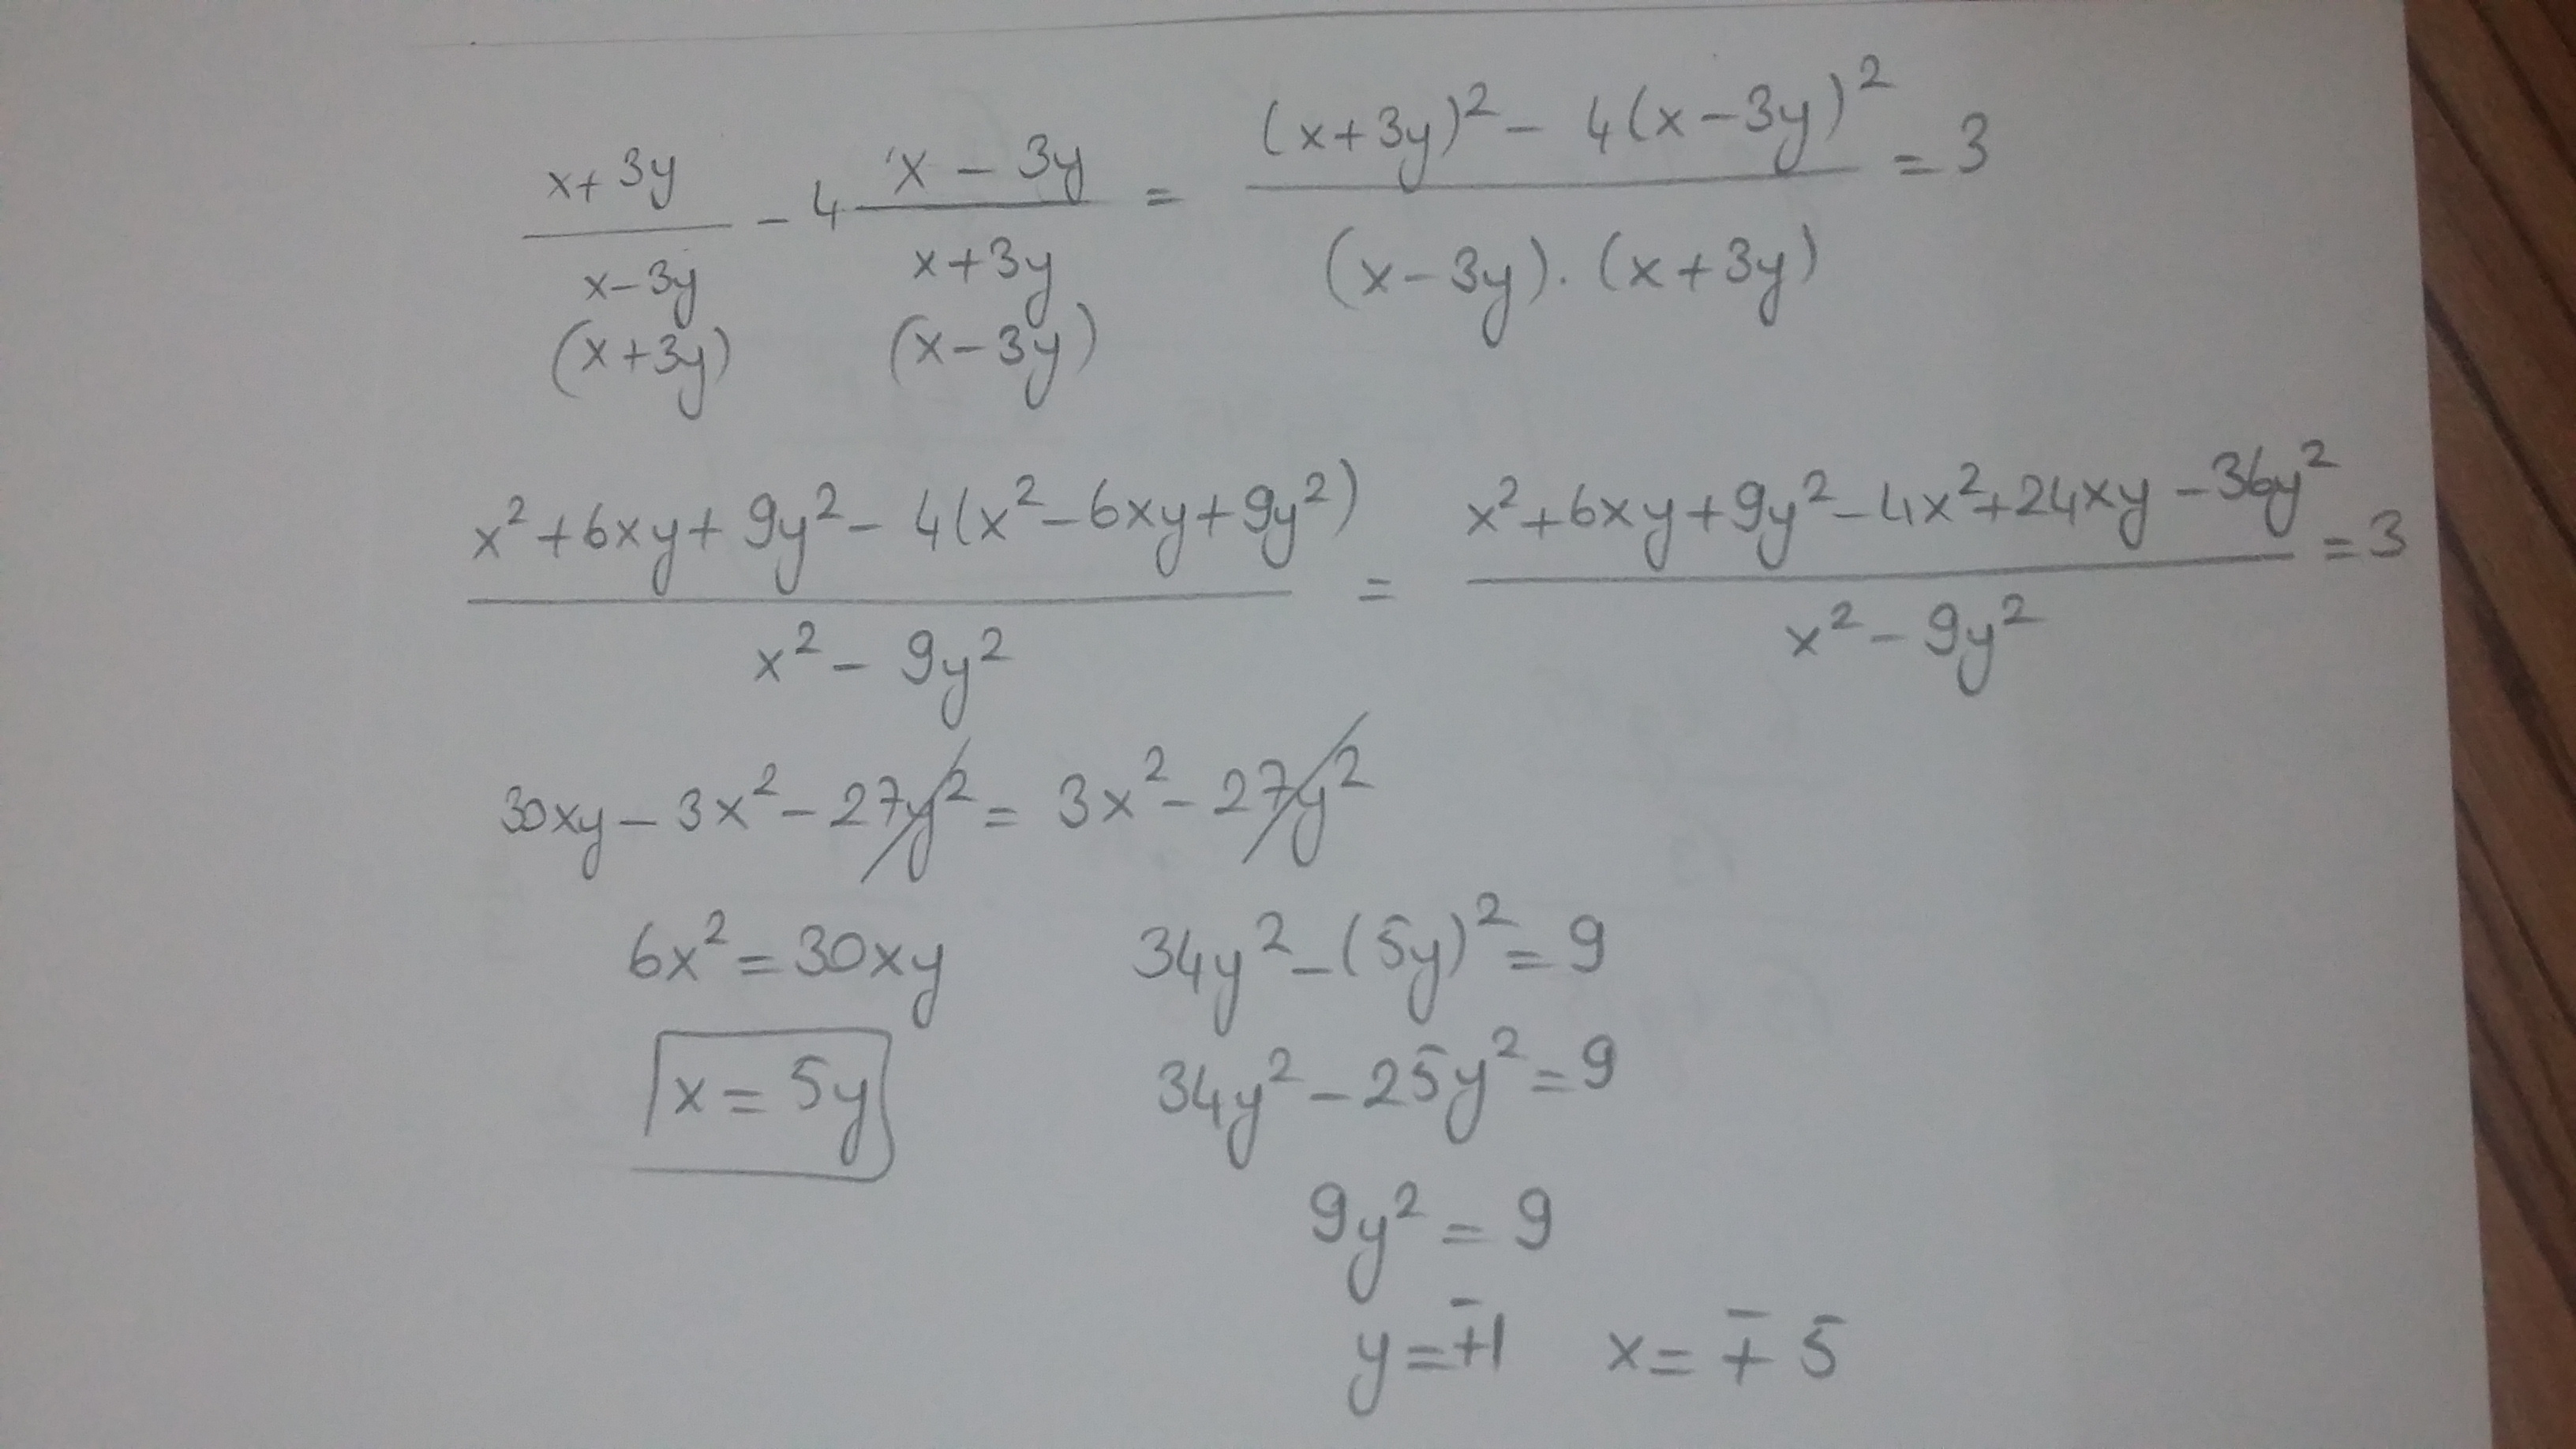 (x+3y)/(x-3y) - 4 (x-3y)/(x+3y) = ((x+3y)² - 4(x-3y)²)/((x-3y).(x+3y)) = 3
(x+3y) (x-3y)
(x²+6xy+9y²-4(x²-6xy+9y²))/(x²-9y²) = (x²+6xy+9y²-4x²+24xy-36y²)/(x²-9y²) = 3
30xy-3x²-27y² = 3x²-27y²
6x² = 30xy 34y²-(5y)² = 9
x = 5y 34y²-25y² = 9
9y² = 9
y = ∓1 x = ∓5